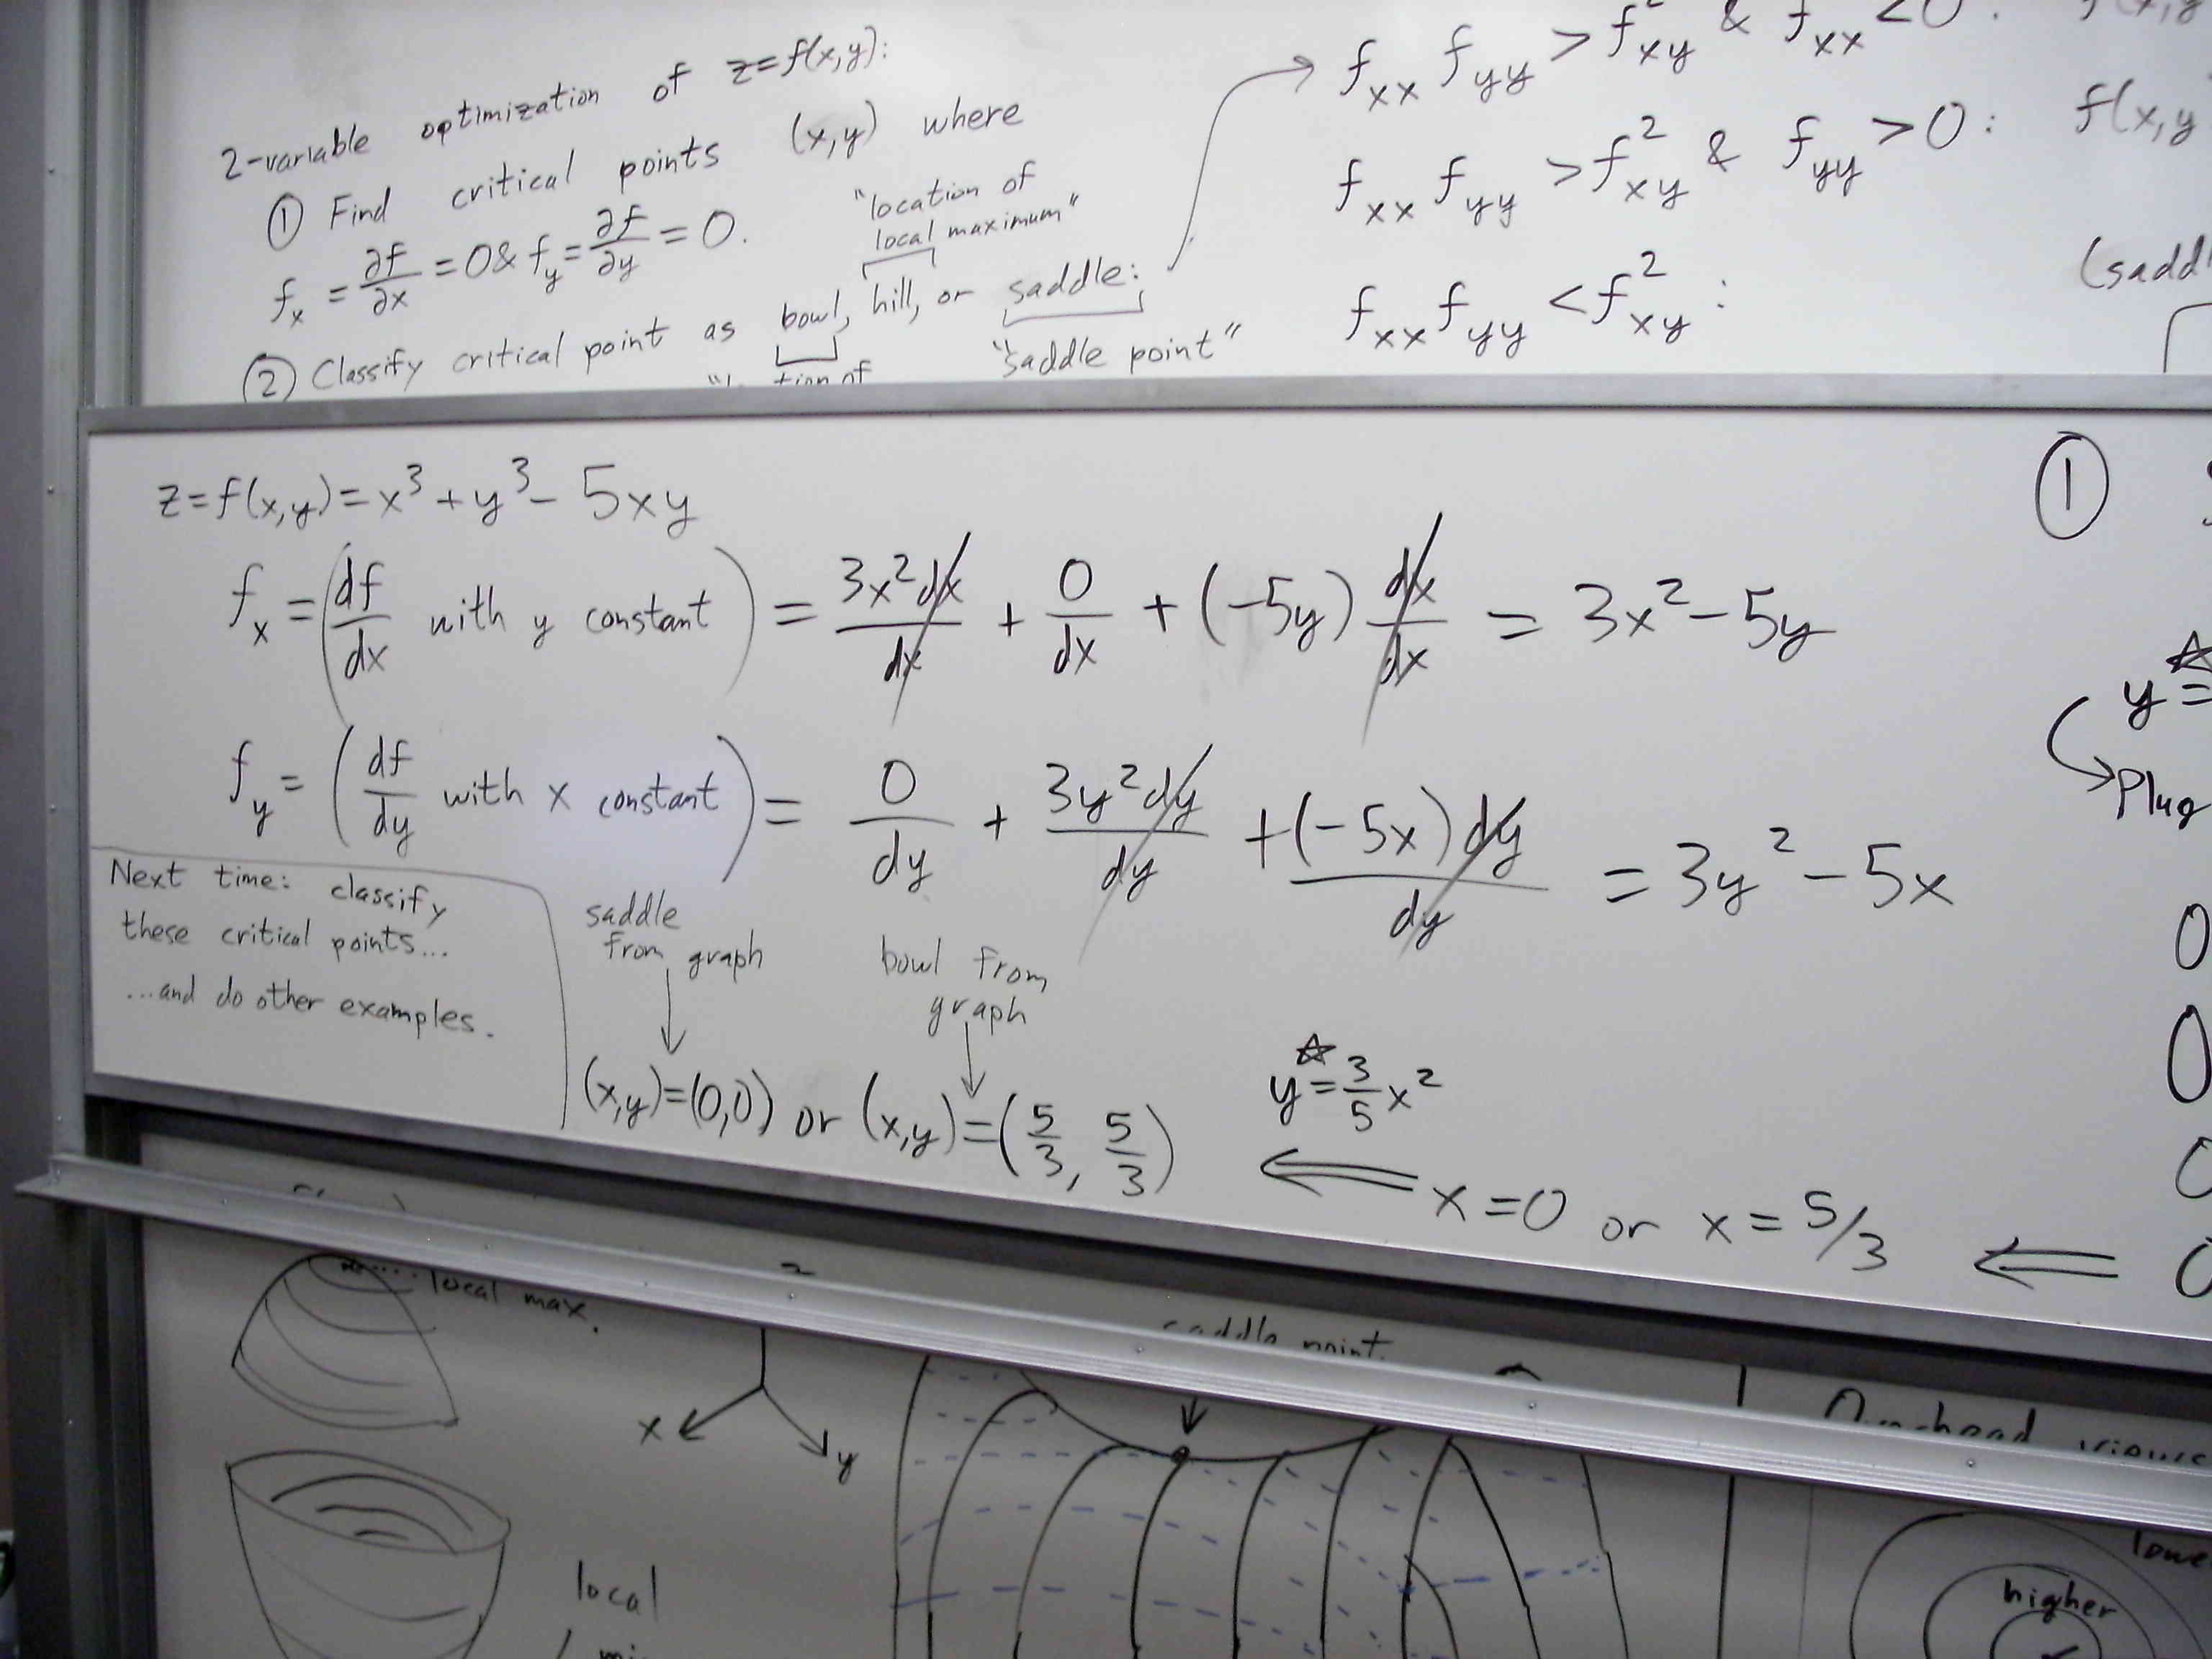 2-variable optimization of z=f(x,y):
① Find critical points (x,y) where
f_x = ∂f/∂x = 0 & f_y = ∂f/∂y = 0.
"location of
local maximum"
② Classify critical point as bowl, hill, or saddle:
"saddle point"
f_xx f_yy > f_xy^2 & f_xx <0:
f_xx f_yy > f_xy^2 & f_yy >0: f(x,y
f_xx f_yy < f_xy^2 :
z=f(x,y)=x^3+y^3-5xy
f_x = (df/dx with y constant) = 3x^2dx/dx + 0/dx + (-5y) dx/dx = 3x^2-5y
f_y = (df/dy with x constant) = 0/dy + 3y^2dy/dy + (-5x)dy/dy = 3y^2-5x
Next time: classify
these critical points...
...and do other examples.
saddle
from graph
bowl from
graph
(x,y)=(0,0) or (x,y)=(5/3, 5/3)
y=☆ 3/5 x^2
⟸ x=0 or x=5/3 ⟸ 0
①
y=☆
Plug
0
0
0
local max.
saddle point.
x
y
local
Overhead views
higher